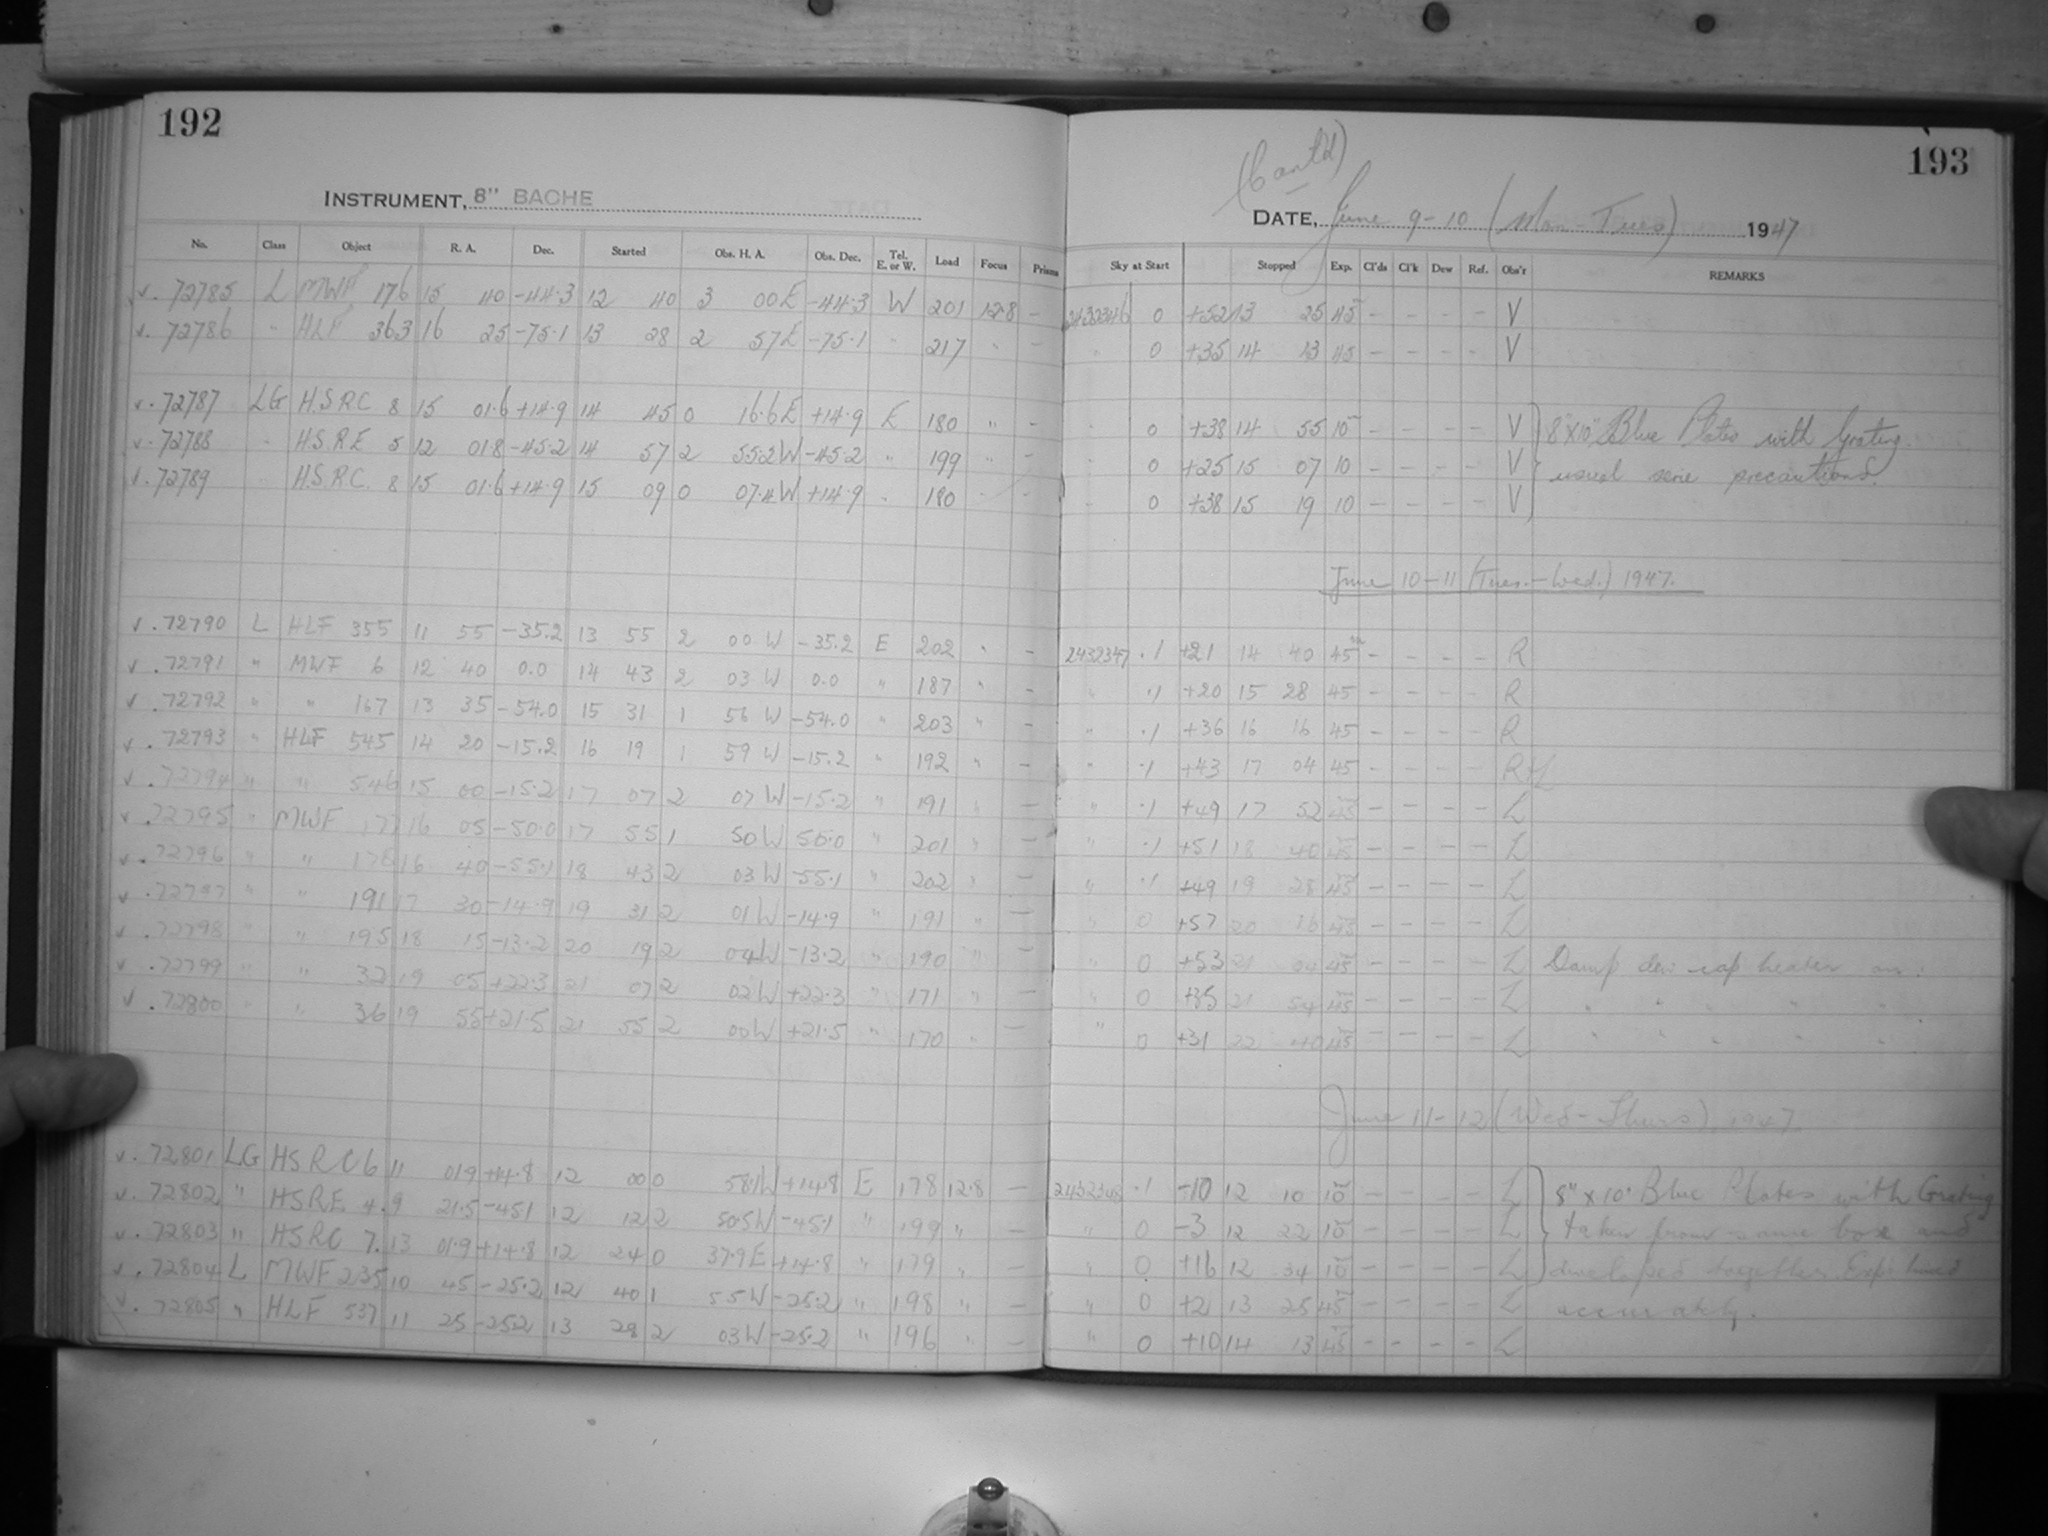 192
INSTRUMENT, 8" BACHE
No. Class Object R. A. Dec. Started Obs. H. A. Obs. Dec. Tel. E. or W. Load Focus Prisms
v. 72785 L MWF 176 15 40 -44.3 12 40 3 00 E -44.3 W 201 12.8 -
v. 72786 " HLF 363 16 25 -75.1 13 28 2 57 E -75.1 " 217 " -
v. 72787 LG H.S.R.C 8 15 01.6 +14.9 14 45 0 16.6 E +14.9 E 180 " -
v. 72788 " H.S.R.E 5 12 01.8 -45.2 14 57 2 55.2 W -45.2 " 199 " -
v. 72789 " H.S.R.C. 8 15 01.6 +14.9 15 09 0 07.4 W +14.9 " 180 - -
v. 72790 L HLF 355 11 55 -35.2 13 55 2 00 W -35.2 E 202 " -
v. 72791 " MWF 6 12 40 0.0 14 43 2 03 W 0.0 " 187 " -
v. 72792 " " 167 13 35 -54.0 15 31 1 56 W -54.0 " 203 " -
v. 72793 " HLF 545 14 20 -15.2 16 19 1 59 W -15.2 " 192 " -
v. 72794 " " 546 15 00 -15.2 17 07 2 07 W -15.2 " 191 " -
v. 72795 " MWF 177 16 05 -50.0 17 55 1 50 W 50.0 " 201 " -
v. 72796 " " 178 16 40 -55.1 18 43 2 03 W 55.1 " 202 " -
v. 72797 " " 191 17 30 -14.9 19 31 2 01 W -14.9 " 191 " -
v. 72798 " " 195 18 15 -13.2 20 19 2 04 W -13.2 " 190 " -
v. 72799 " " 32 19 05 +22.3 21 07 2 02 W +22.3 " 171 " -
v. 72800 " " 36 19 55 +21.5 21 55 2 00 W +21.5 " 170 " -
v. 72801 LG HSRC 6 11 01.9 +14.8 12 00 0 58.1 W +14.8 E 178 12.8 -
v. 72802 " HSRE 4. 9 21.5 -45.1 12 12 2 50.5 W -45.1 " 199 " -
v. 72803 " HSRC 7. 13 01.9 +14.8 12 24 0 37.9 E +14.8 " 179 " -
v. 72804 L MWF 235 10 45 -25.2 12 40 1 55 W -25.2 " 198 " -
v. 72805 " HLF 537 11 25 -25.2 13 28 2 03 W -25.2 " 196 " -
193
(Cont'd)
DATE, June 9-10 (Mon - Tues) 1947
Sky at Start Stopped Exp. Cl'ds Cl'k Dew Ref. Obs'r REMARKS
2432346 0 +52 13 25 45 - - - - V
" 0 +35 14 13 45 - - - - V
" 0 +38 14 55 10 - - - - V 8"x10" Blue Plates with Grating.
" 0 +25 15 07 10 - - - - V usual precautions.
" 0 +38 15 19 10 - - - - V
June 10-11 (Tues.-Wed.) 1947.
2432347 .1 +21 14 40 45 - - - - R
" .1 +20 15 28 45 - - - - R
" .1 +36 16 16 45 - - - - R
" .1 +43 17 04 45 - - - - R+L
" .1 +49 17 52 45 - - - - L
" .1 +51 18 40 45 - - - - L
" .1 +49 19 28 45 - - - - L
" 0 +57 20 16 45 - - - - L
" 0 +53 21 04 45 - - - - L Damp dew cap heater on.
" 0 +35 21 54 45 - - - - L " " " " "
" 0 +31 22 40 45 - - - - L " " " " "
June 11-12 (Wed-Thurs). 1947.
2432348 .1 -10 12 10 10 - - - - L 8" x 10" Blue Plates with Grating
" 0 -3 12 22 10 - - - - L taken from same box and
" 0 +16 12 34 10 - - - - L developed together. Exp. timed
" 0 +2 13 25 45 - - - - L accurately.
" 0 +10 14 13 45 - - - - L